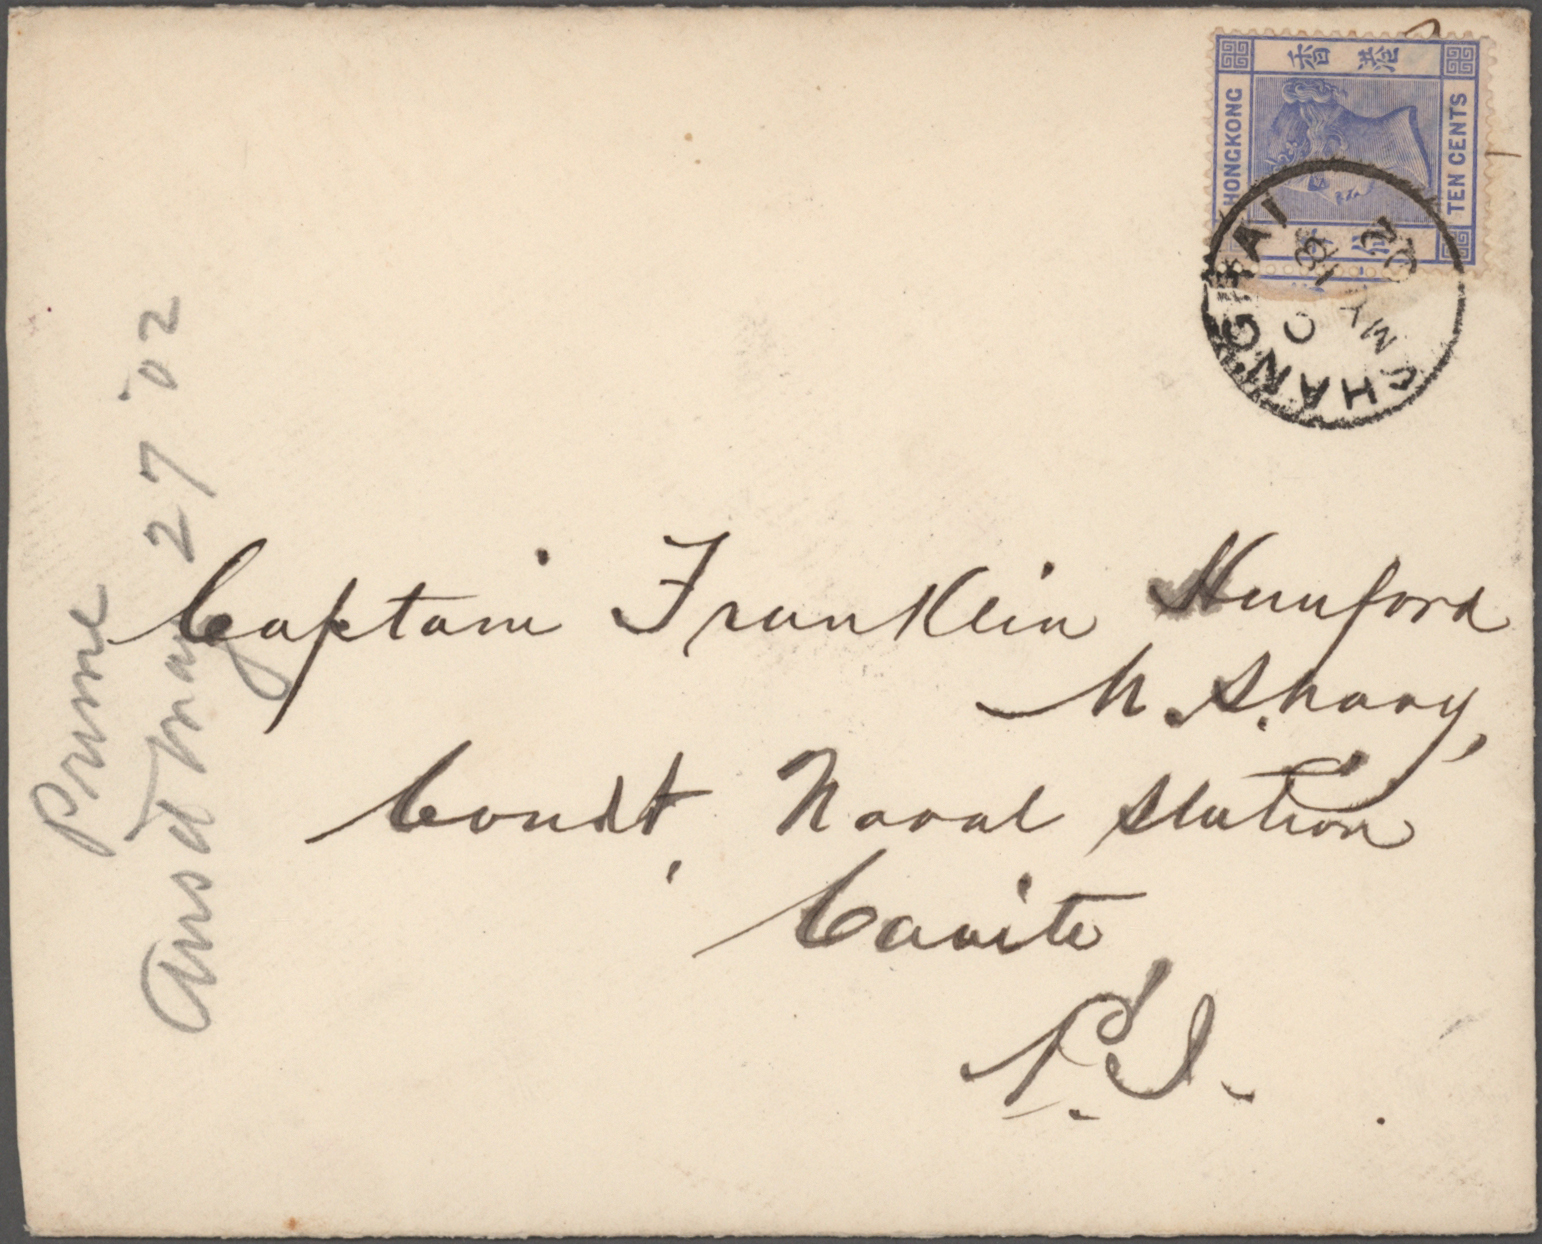 香港
HONGKONG
TEN CENTS
SHANGHAI
C
MY 18
02
Captain Franklin Hanford
U.S. Navy,
Comdt. Naval Station
Cavite
P.I.
Prime
Ansd May 27 '02